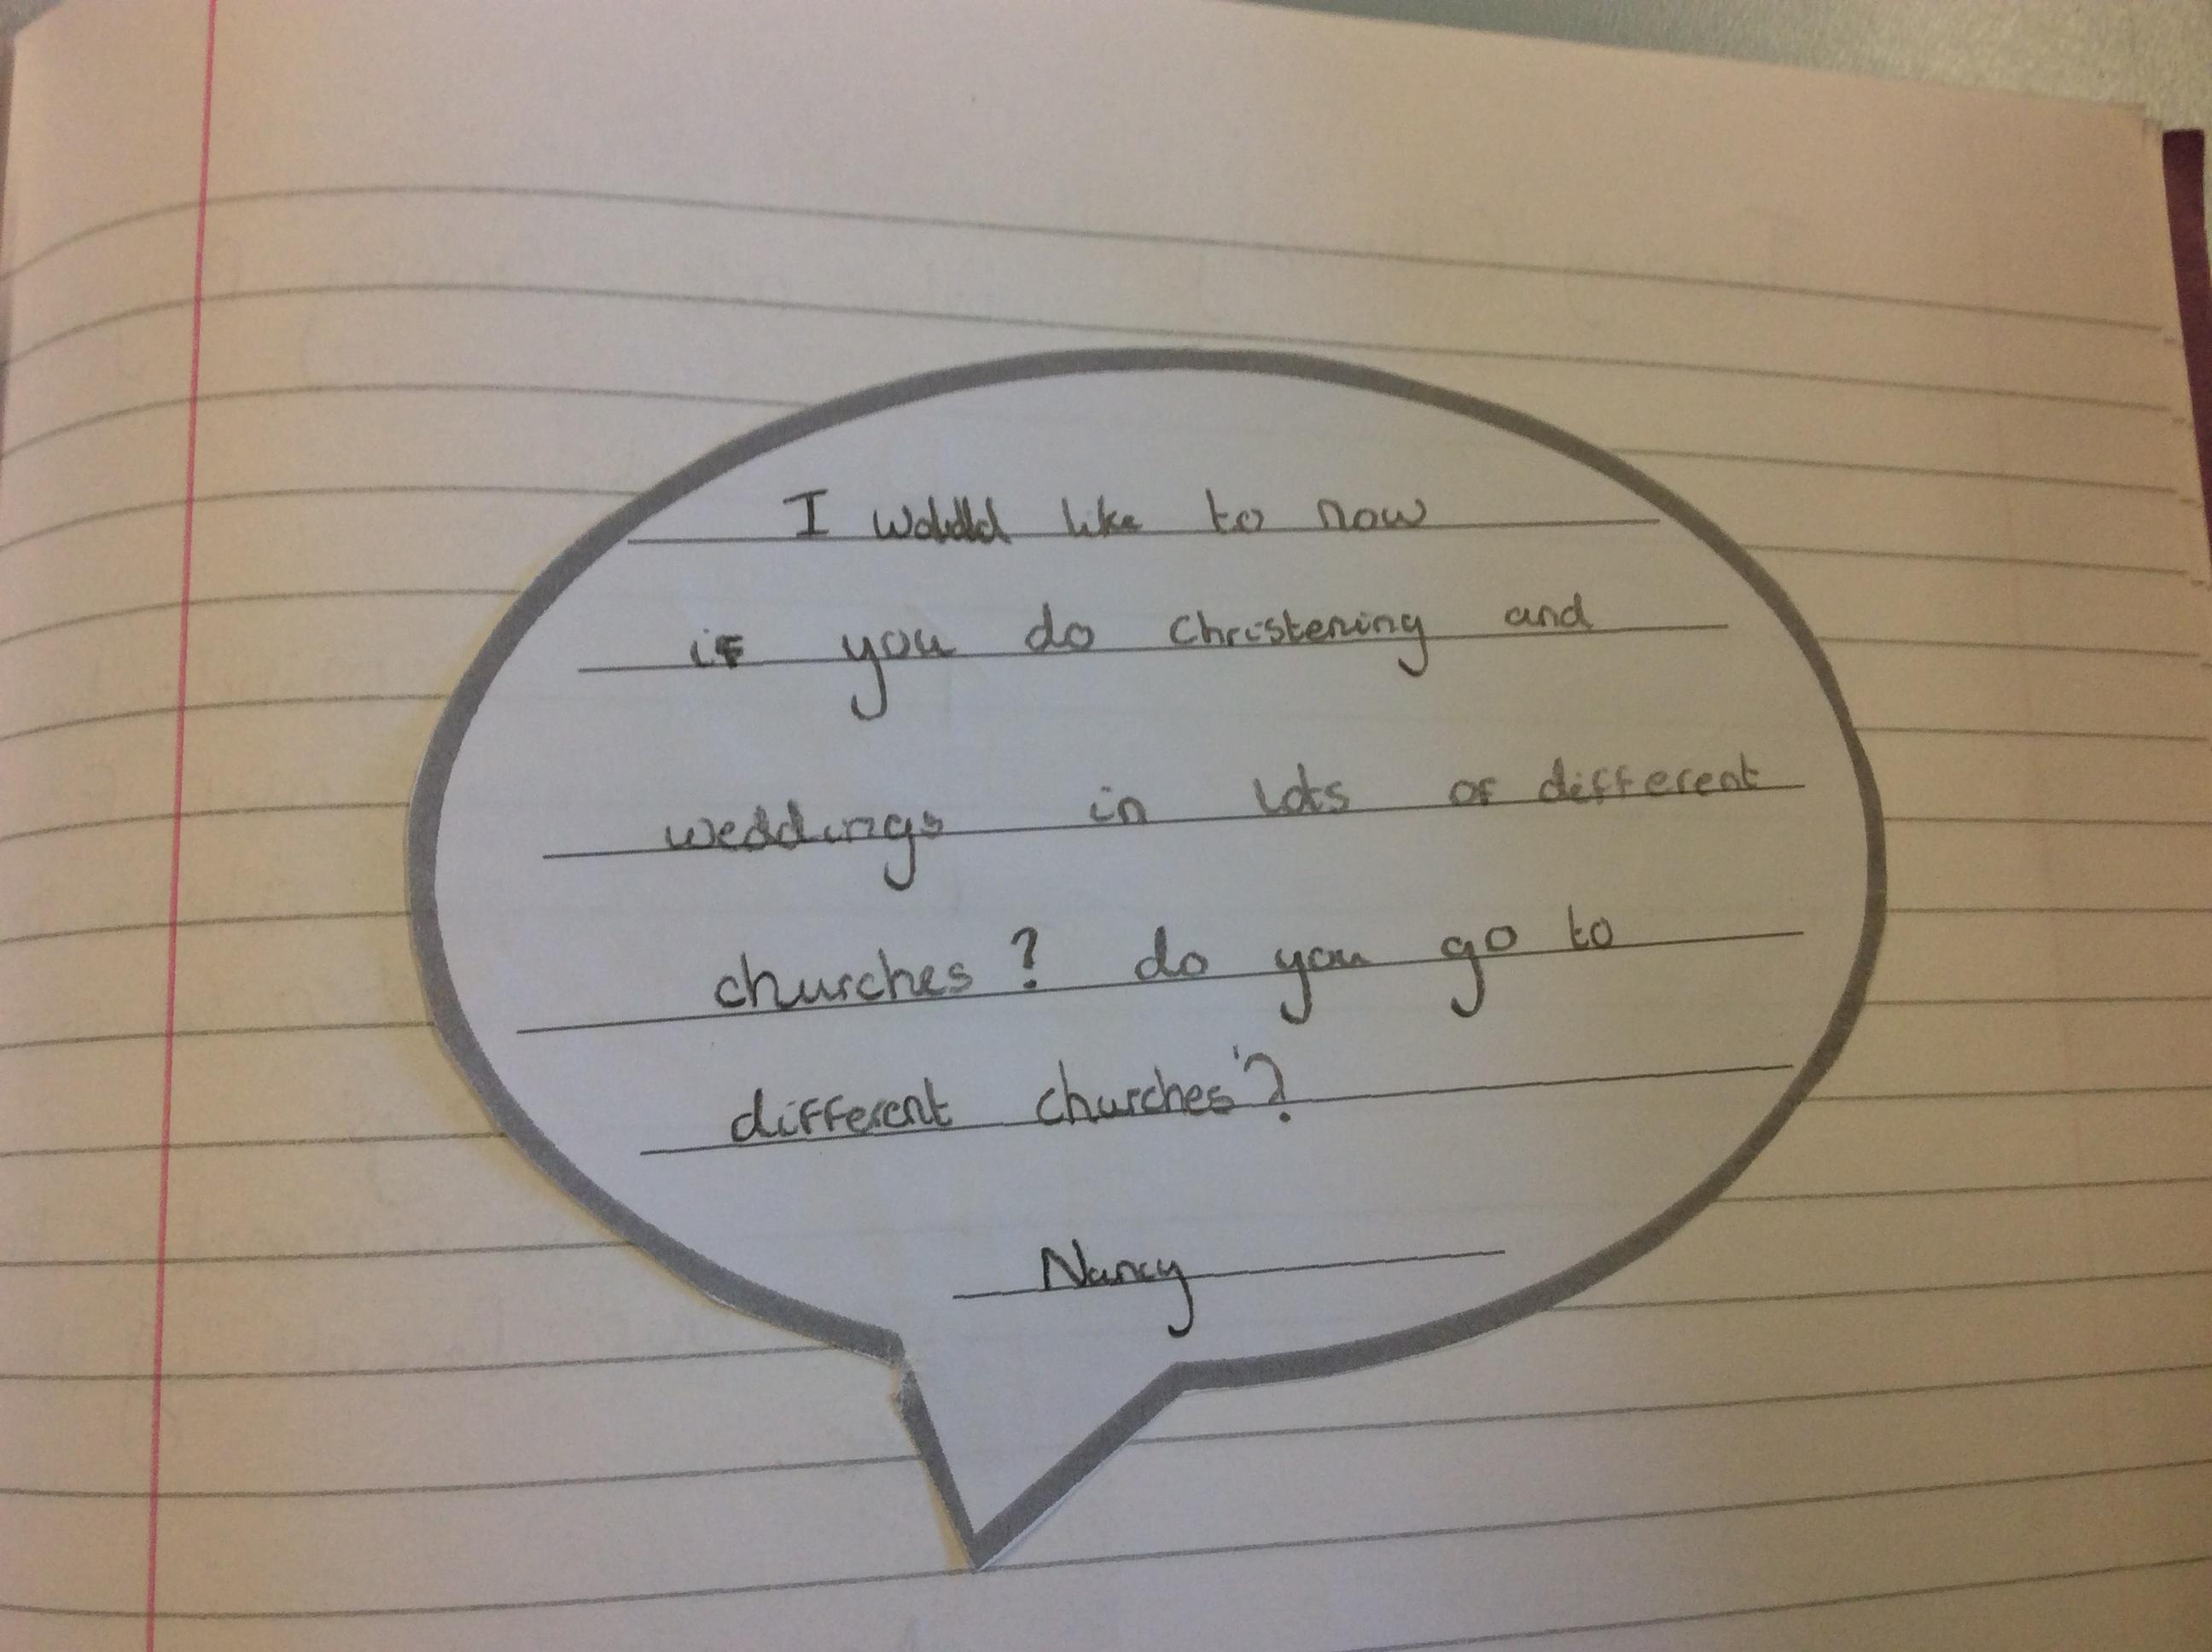 I would like to now
if you do christening and
weddings in lots of different
churches? do you go to
different churches?
Nancy